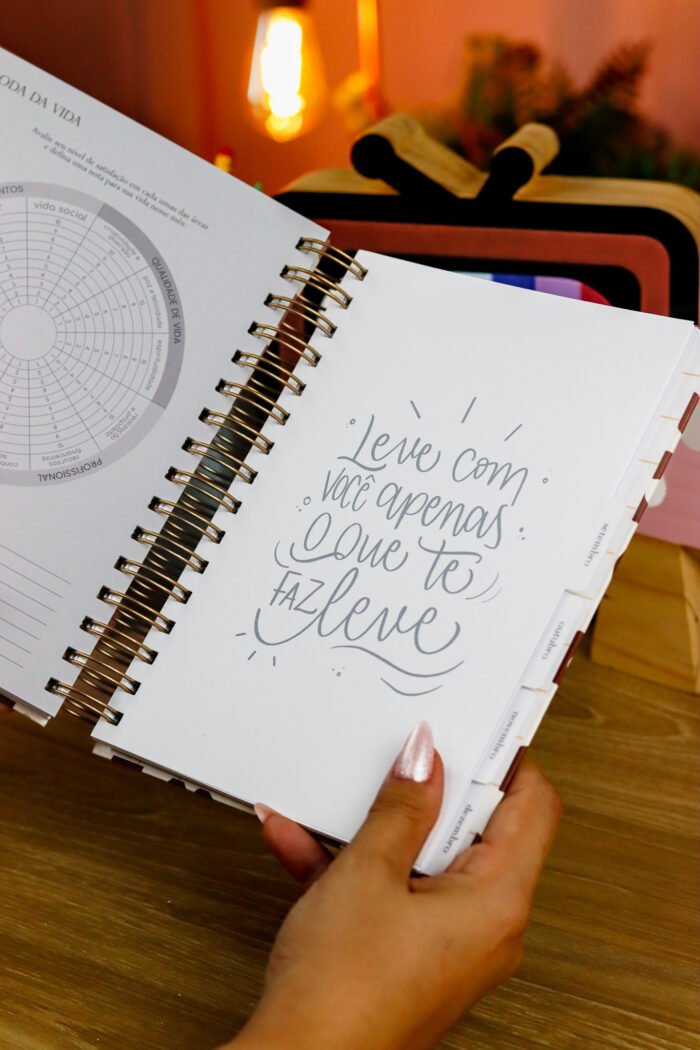 ODA DA VIDA
Avalie seu nível de satisfação em cada umas das áreas
e defina uma nota para sua vida nesse mês:
NTOS
vida social
criatividade e
diversão
QUALIDADE DE VIDA
paz e felicidade
espiritualidade
realização
e propósito
recursos
financeiros
PROFISSIONAL
Leve com
você apenas
o que te
faz leve
setembro
outubro
novembro
dezembro